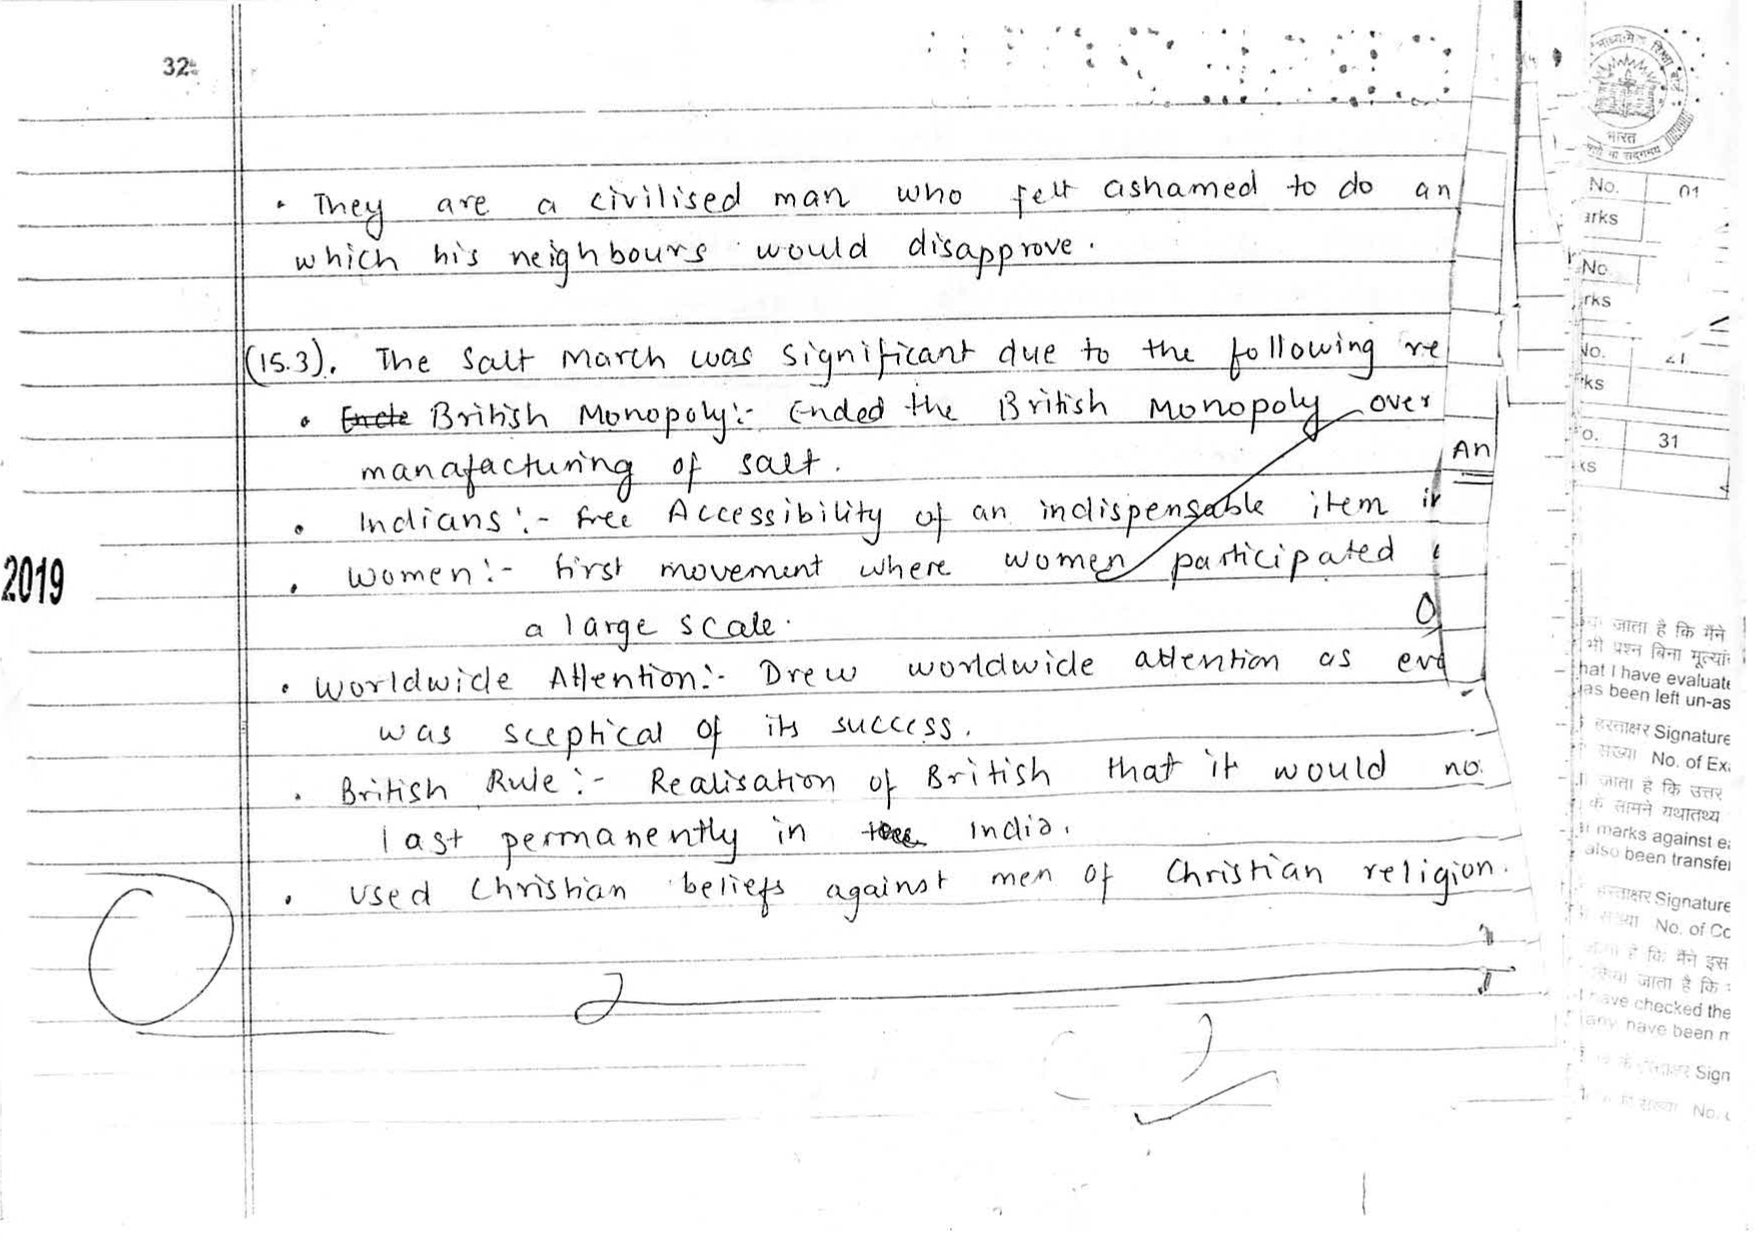 32
• They are a civilised man who felt ashamed to do an
which his neighbours would disapprove.
(15.3). The Salt March was significant due to the following re
• British Monopoly:- Ended the British Monopoly over
An
manafacturing of salt.
• Indians:- Free Accessibility of an indispensable item
• Women:- First movement where women participated
2019
a large scale.
• Worldwide Attention:- Drew worldwide attention as
was sceptical of its success.
• British Rule:- Realisation of British that it would no
last permanently in India.
• Used Christian beliefs against men of Christian religion.
भारत
No. 01
arks
No.
rks
No. 21
ks
o. 31
ks
जाता है कि मैंने
भी प्रश्न बिना मूल्यां
hat I have evaluate
as been left un-as
हस्ताक्षर Signature
सख्या No. of Ex
जाता है कि उत्तर
के सामने यथातथ्य
marks against e
also been transfe
Signature
No. of Co
है कि मैंने इस
किया जाता है कि
have checked the
any have been m
Sign
No.